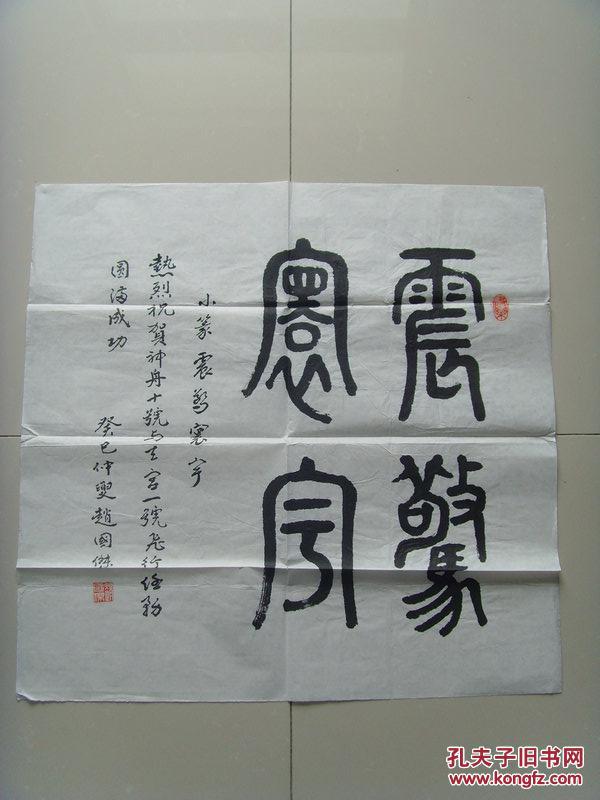 震驚
寰宇
小篆 震驚寰宇
熱烈祝賀神舟十號与天宮一號飛行任務
圆满成功
癸巳仲夏趙國傑
孔夫子旧书网
www.kongfz.com